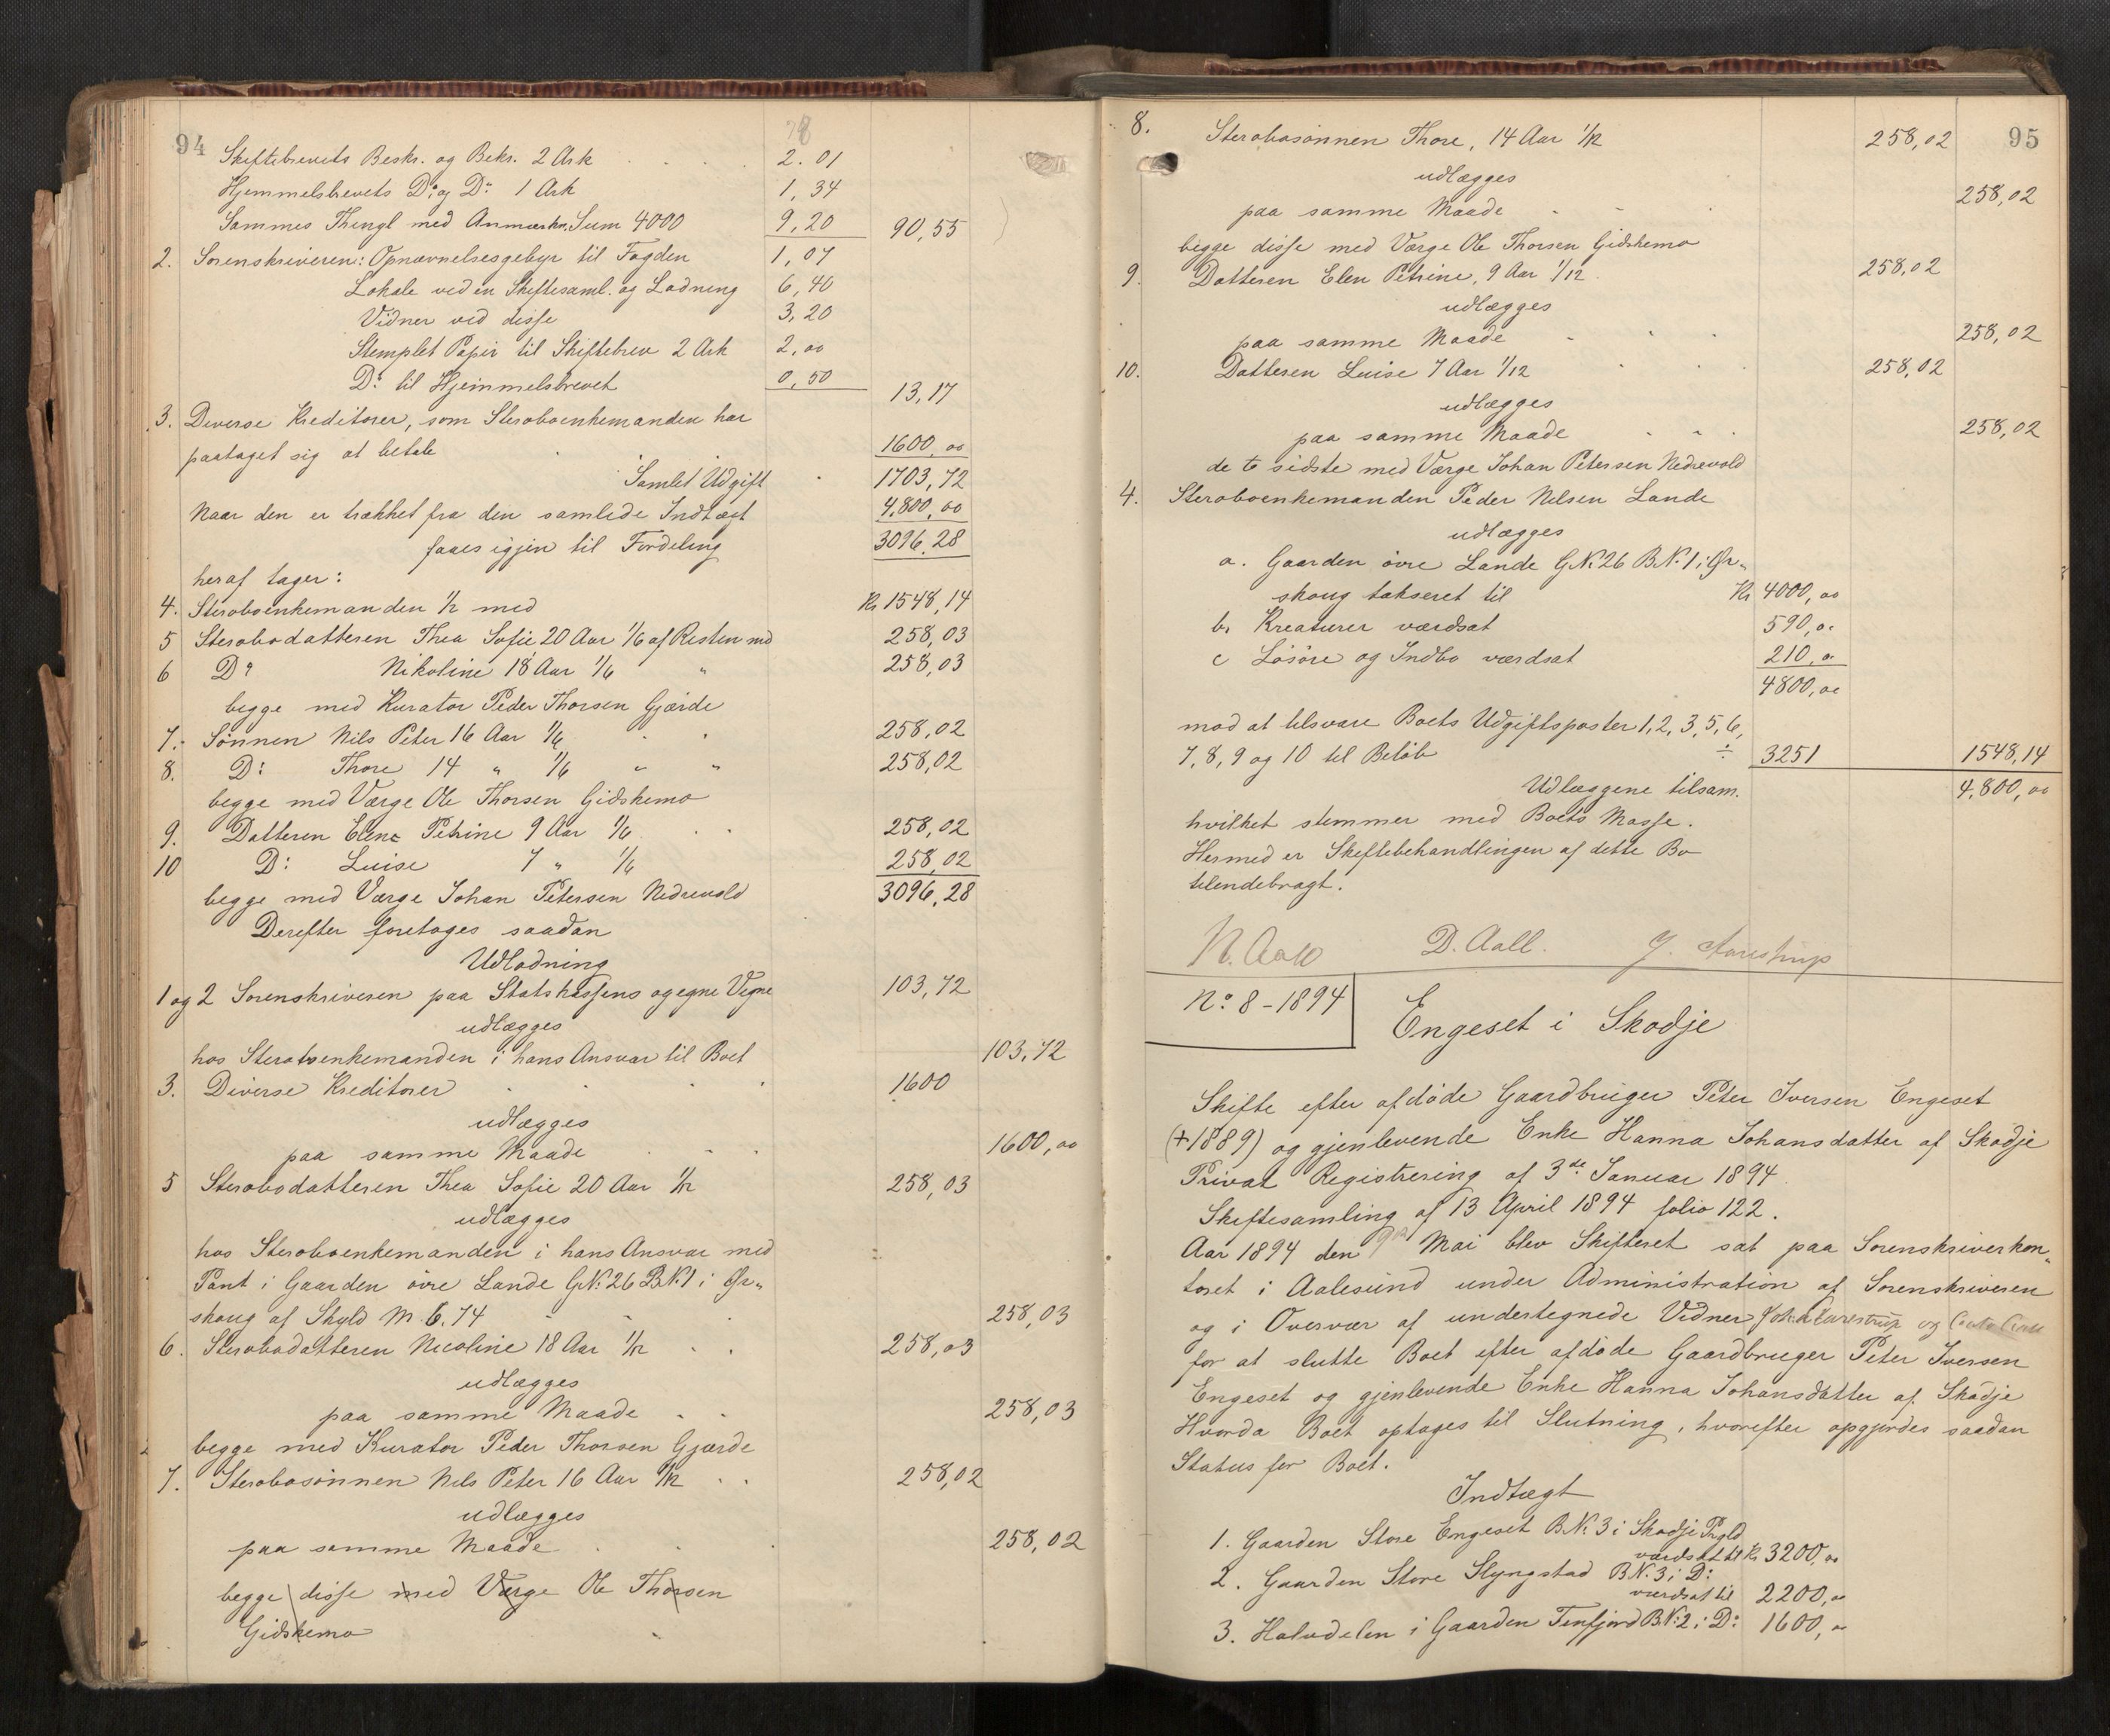 94
Skiftebrevets Beskr. og Bekr. 2 Ark 2.01
Hjemmelsbrevets Do: og Do: 1 Ark 1,34
Sammes Thingl med Anmærkn. Sum 4000 9,20 90,55
2. Sorenskriveren: Opnævnelsesgebyr til Fogden 1,07
Lokale ved en Skiftesaml. og Lodning 6,40
Vidner ved disse 3,20
Stemplet Papir til Skiftebrev 2 Ark 2,00
Do: til Hjemmelsbrevet 0,50 13,17
3. Diverse Kreditorer, som Sterboenkemanden har
paataget sig at betale 1600,00
Samlet Udgift 1703,72
Naar den er trækket fra den samlede Indtægt 4,800,00
faaes igjen til Fordeling 3096.28
heraf tager:
4. Sterboenkemanden 1/2 med Kr 1548,14
5 Sterbodatteren Thea Sofie 20 Aar 1/6 af Resten med 258,03
6 Do: Nikoline 18 Aar 1/6 " 258,03
begge med Kurator Peder Thorsen Gjærde
7. Sønnen Nils Peter 16 Aar 1/6 258,02
8. Do: Thore 14 " 1/6 " " 258,02
begge med Værge Ole Thorsen Gidskemo
9. Datteren Elene Petrine 9 Aar 1/6 258,02
10 Do: Luise 7 " 1/6 258,02
begge med Værge Johan Petersen Nedrevold 3096,28
Derefter foretages saadan
Udlodning
1 og 2 Sorenskriveren paa Statskassens og egne Vegne 103,72
udlægges
hos Sterboenkemanden i hans Ansvar til Boet 103,72
3. Diverse Kreditorer 1600
udlægges
paa samme Maade 1600,00
5 Sterbodatteren Thea Sofie 20 Aar 1/12 258,03
udlægges
hos Sterboenkemanden i hans Ansvar med
Pant i Gaarden øvre Lande GN: 26 BN: 1 i Ør„
skoug af Skyld M 6.74 258,03
6. Sterbodatteren Nicoline 18 Aar 1/12 258,03
udlægges
paa samme Maade 258,03
begge med Kurator Peder Thorsen Gjærde
7. Sterbosønnen Nils Peter 16 Aar 1/12 258,02
udlægges
paa samme Maade 258,02
begge disse med Værge Ole Thorsen
Gidskemo
95
8. Sterbosønnen Thore, 14 Aar 1/12 258,02
udlægges
paa samme Maade 258,02
begge disse med Værge Ole Thorsen Gidskemo
9. Datteren Elen Petrine, 9 Aar 1/12 258,02
udlægges
paa samme Maade 258,02
10. Datteren Luise 7 Aar 1/12 258,02
udlægges
paa samme Maade 258,02
de to sidste med Værge Johan Petersen Nedrevold
4. Sterboenkemanden Peder Nelsen Lande
udlægges
a. Gaarden øvre Lande GN: 26 BN: 1 i Ør„
skoug takseret til Kr 4000,00
b. Kreaturer værdsat 590,00
c Løsøre og Indbo værdsat 210,00
4800,00
mod at tilsvare Boets Udgiftsposter 1, 2, 3, 5, 6,
7, 8, 9 og 10 til Beløb ÷ 3251 1548,14
Udlæggene tilsam. 4,800,00
hvilket stemmer med Boets Masse.
Hermed er Skiftebehandlingen af dette Bo
tilendebragt.
N. Aall D. Aall. J. Aarestrup
No: 8-1894 Engeset i Skodje
Skifte efter afdøde Gaardbruger Peter Iversen Engeset
(+1889) og gjenlevende Enke Hanna Johansdatter af Skodje
Privat Registrering af 3de Januar 1894
Skiftesamling af 13 April 1894 folio 122.
Aar 1894 den 9de Mai blev Skifteret sat paa Sorenskriverkon„
toret i Aalesund under Administration af Sorenskriveren
og i Overvær af undertegnede Vidner Joh. Aarestrup og
for at slutte Boet efter afdøde Gaardbruger Peter Iversen
Engeset og gjenlevende Enke Hanna Johansdatter af Skodje
Hvorda Boet optages til Slutning, hvorefter opgjordes saadan
Status for Boet.
Indtægt
1. Gaarden Store Engeset BN: 3 i Skodje Prgld
værdsat til Kr 3200,00
2. Gaarden Store Slyngstad BN: 3 i Do:
værdsat til 2200,00
3. Halvdelen i Gaarden Tenfjord BN: 2 i Do: 1600,00